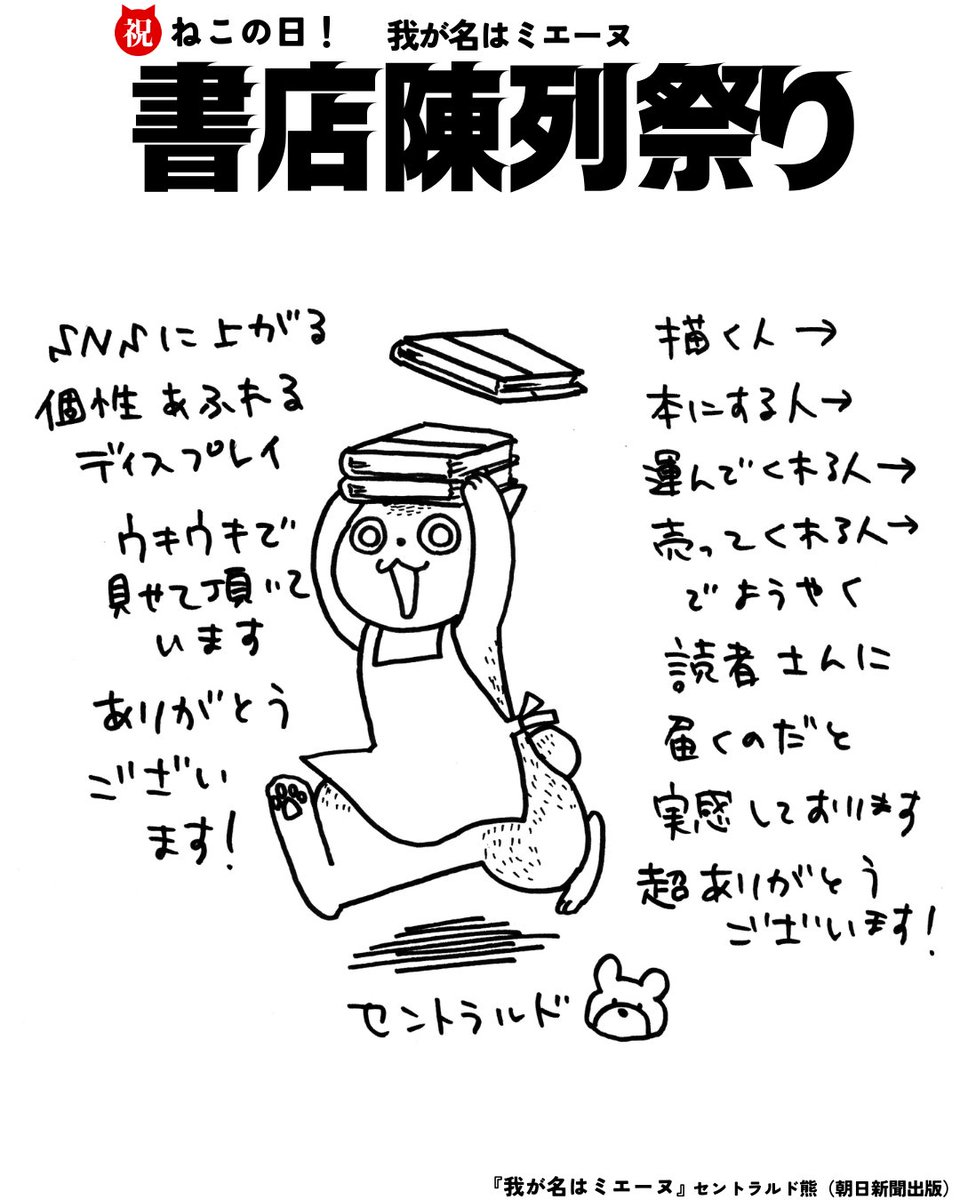 祝 ねこの日! 我が名はミエーヌ
書店陳列祭り
SNSに上がる
個性あふれる
ディスプレイ
ウキウキで
見せて頂いて
います
ありがとう
ござい
ます!
描く人→
本にする人→
運んでくれる人→
売ってくれる人→
でようやく
読者さんに
届くのだと
実感しております
超ありがとう
ございます!
セントラルド
『我が名はミエーヌ』セントラルド熊(朝日新聞出版)